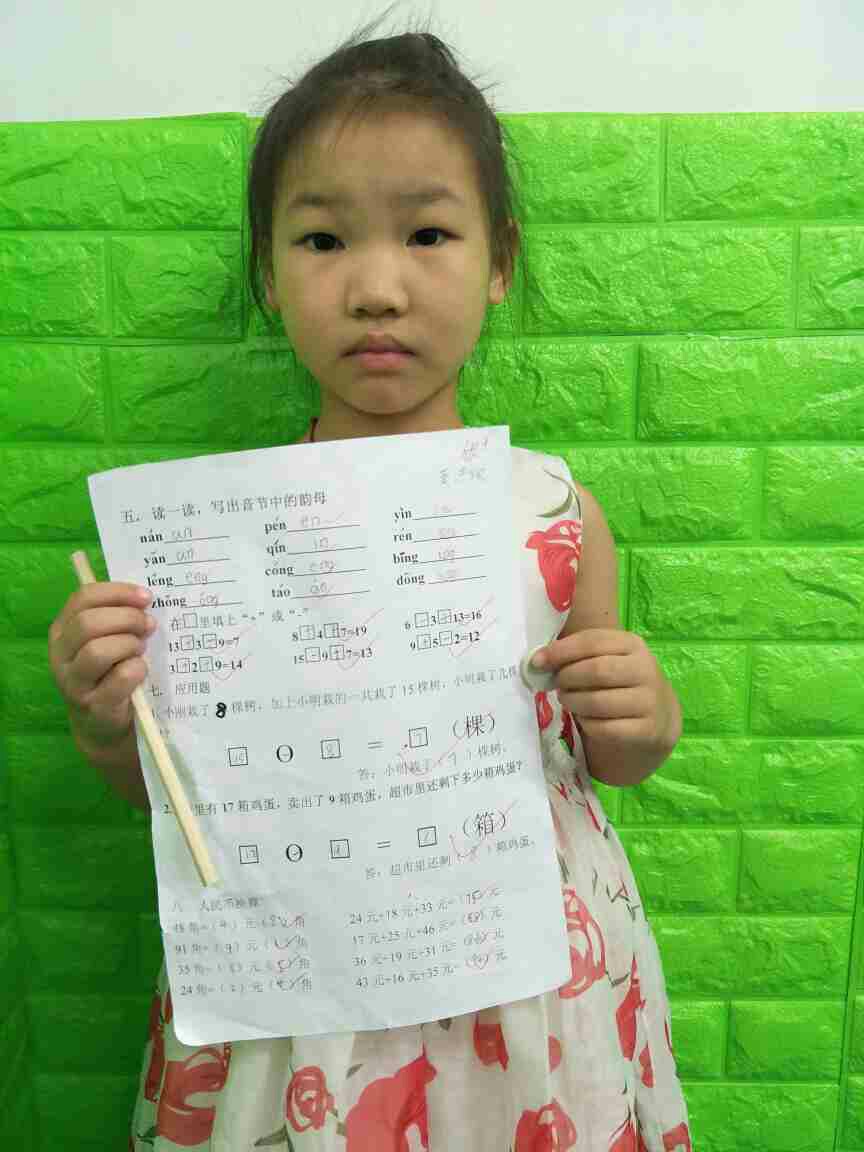 五、读一读，写出音节中的韵母
nán an pén en yìn
yǎn an qín in rén
léng eng cóng bīng
zhōng ong táo dōng
在□里填上“+”或“-”
13 + 3 - 9=7 8 + 4 + 7=19 6 - 3 + 13=16
3 + 2 + 9=14 15 - 9 + 7=13 9 + 5 - 2=12
七、应用题
小刚栽了 8 棵树，加上小明栽的一共栽了 15 棵树，小明栽了几棵
15 - 8 = 7 （棵）
答：小明栽了（7）棵树。
2. 里有 17 箱鸡蛋，卖出了 9 箱鸡蛋，超市里还剩下多少箱鸡蛋？
17 - = （箱）
答：超市里还剩（ ）箱鸡蛋。
八 人民币换算
48 角=（4）元（8）角 24 元+18 元+33 元=（75）元
91 角=（9）元（1）角 17 元+25 元+46 元=（88）元
35 角=（3）元（5）角 36 元+19 元+31 元=（86）元
24 角=（2）元（4）角 43 元+16 元+35 元=（94）元